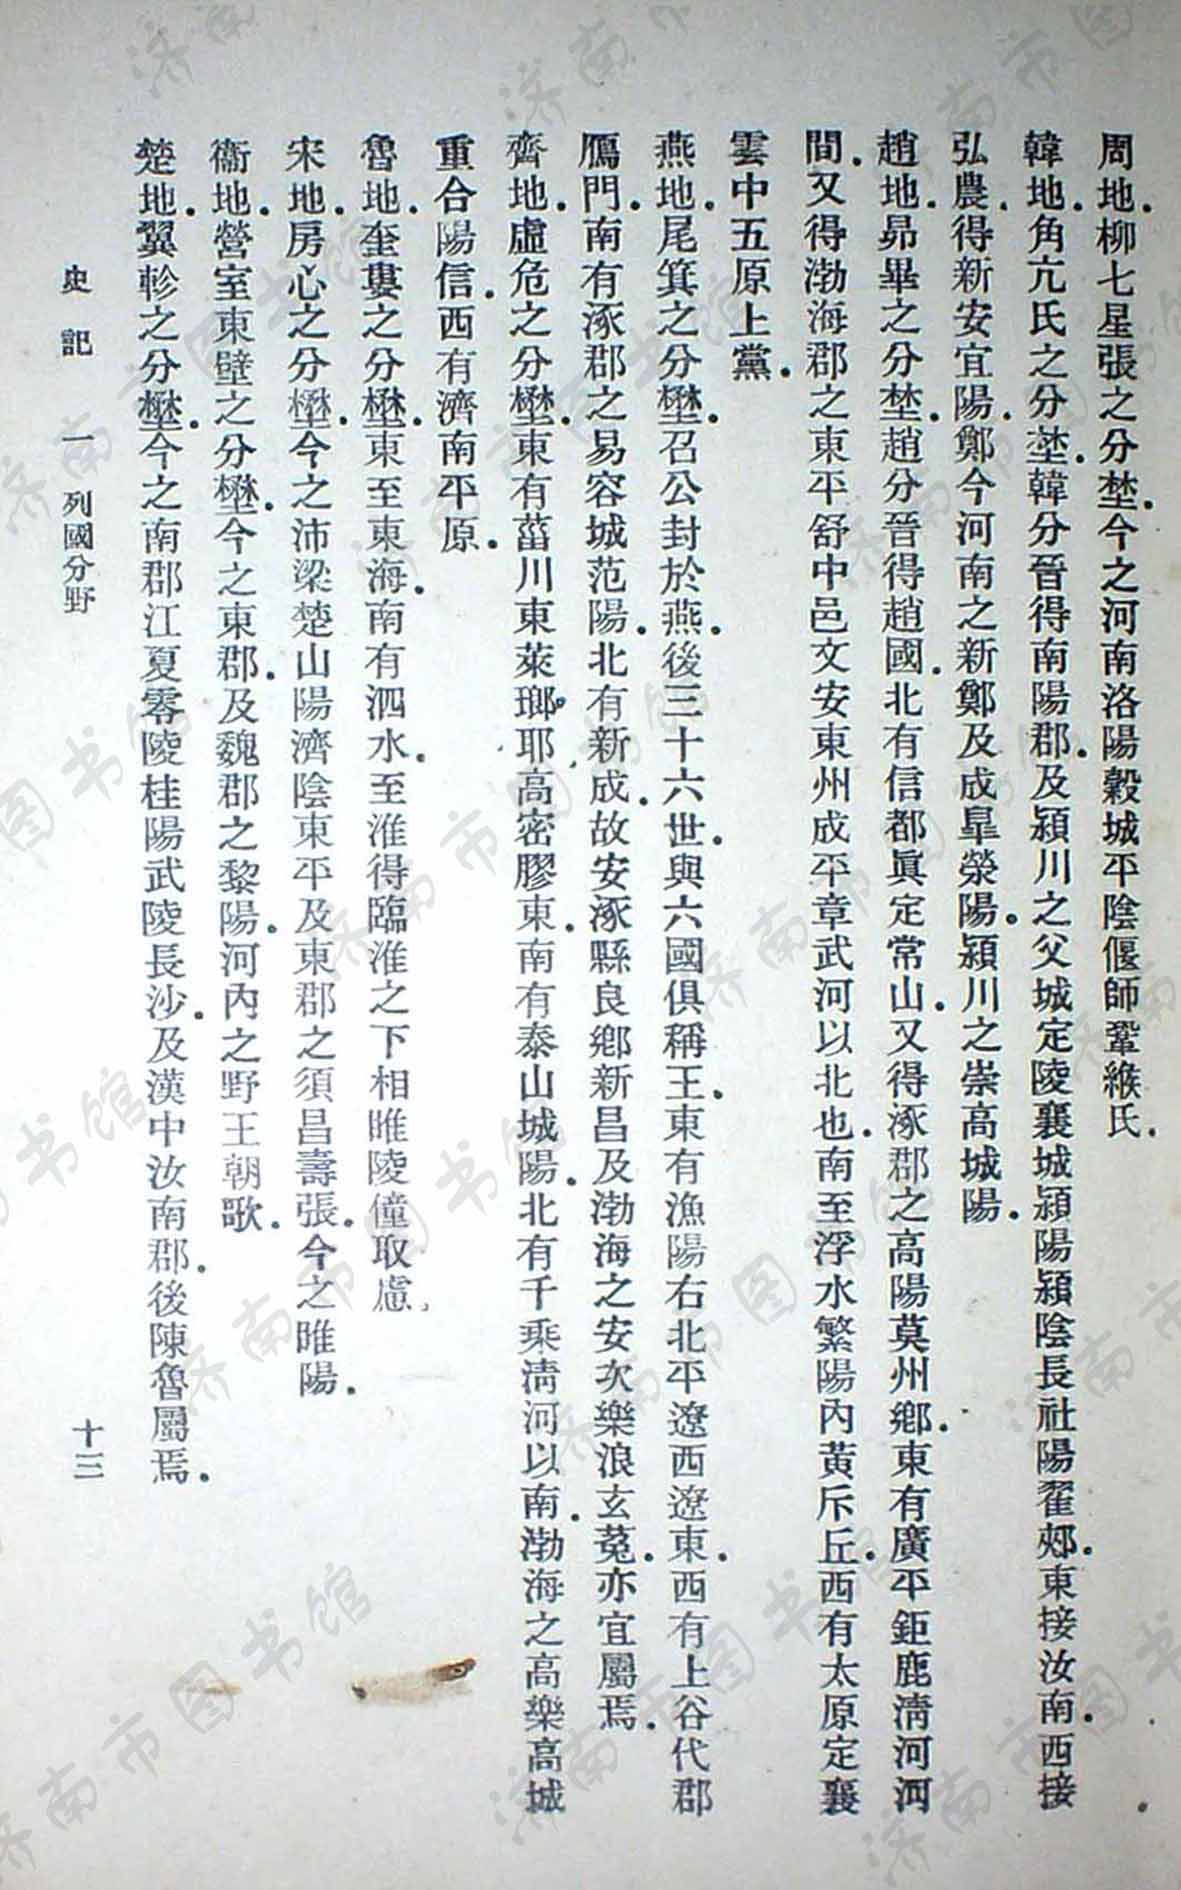 周地．柳七星張之分埜．今之河南洛陽穀城平陰偃師鞏緱氏．
韓地．角亢氐之分埜．韓分晉得南陽郡．及潁川之父城定陵襄城潁陽潁陰長社陽翟郟．東接汝南．西接
弘農．得新安宜陽．鄭今河南之新鄭及成皐滎陽．潁川之崇高城陽．
趙地．昴畢之分埜．趙分晉得趙國．北有信都眞定常山．又得涿郡之高陽莫州鄉．東有廣平鉅鹿淸河河
間．又得渤海郡之東平舒中邑文安東州成平章武河以北也．南至浮水繁陽內黃斥丘．西有太原定襄
雲中五原上黨．
燕地．尾箕之分壄．召公封於燕．後三十六世．與六國俱稱王．東有漁陽右北平遼西遼東．西有上谷代郡
鴈門．南有涿郡之易容城范陽．北有新成．故安涿縣良鄕新昌及渤海之安次樂浪玄菟．亦宜屬焉．
齊地．虛危之分壄．東有菑川東萊瑯．耶高密膠東．南有泰山城陽．北有千乘淸河以南．渤海之高樂高城
重合陽信．西有濟南平原．
魯地．奎婁之分壄．東至東海．南有泗水．至淮得臨淮之下相睢陵僮取慮．
宋地．房心之分壄．今之沛梁楚山陽濟陰東平及東郡之須昌壽張．今之睢陽．
衞地．營室東壁之分壄．今之東郡．及魏郡之黎陽．河內之野王朝歌．
楚地．翼軫之分壄．今之南郡江夏零陵桂陽武陵長沙．及漢中汝南郡．後陳魯屬焉．
史記 一 列國分野 十三
济南市图书馆